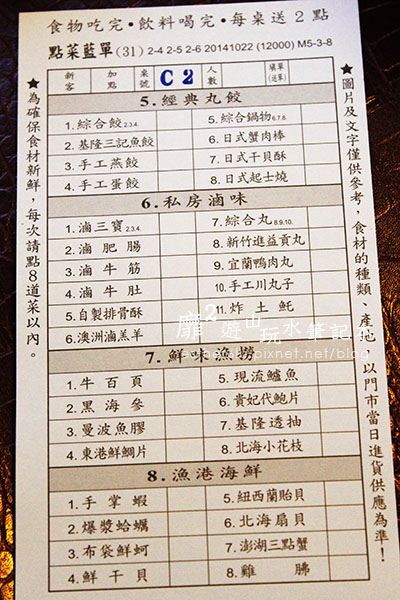 食物吃完・飲料喝完・每桌送2點
點菜藍單(31) 2-4 2-5 2-6 20141022 (12000) M5-3-8
新客 加點 桌號 C2 人數 填單(送單)
5.經典丸餃
1.綜合餃2.3.4. 5.綜合鍋物6.7.8.
2.基隆三記魚餃 6.日式蟹肉棒
3.手工燕餃 7.日式干貝酥
4.手工蛋餃 8.日式起士燒
6.私房滷味
1.滷三寶2.3.4. 7.綜合丸8.9.10.
2.滷肥腸 8.新竹進益貢丸
3.滷牛筋 9.宜蘭鴨肉丸
4.滷牛肚 10.手工川丸子
5.自製排骨酥 11.炸土魠
6.澳洲滷羔羊
7.鮮味漁撈
1.牛百頁 5.現流鱸魚
2.黑海參 6.貴妃代鮑片
3.曼波魚膠 7.基隆透抽
4.東港鮮鯛片 8.北海小花枝
8.漁港海鮮
1.手掌蝦 5.紐西蘭貽貝
2.爆漿蛤蠣 6.北海扇貝
3.布袋鮮蚵 7.澎湖三點蟹
4.鮮干貝 8.雞腑
★為確保食材新鮮，每次請點8道菜以內。
★圖片及文字僅供參考，食材的種類、產地，以門市當日進貨供應為準！
遊山玩水筆記
pixnet.net/blog